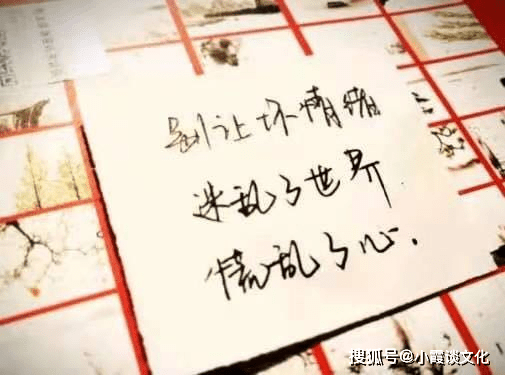 别让坏情绪
迷乱了世界
慌乱了心.
搜狐号@小霞谈文化